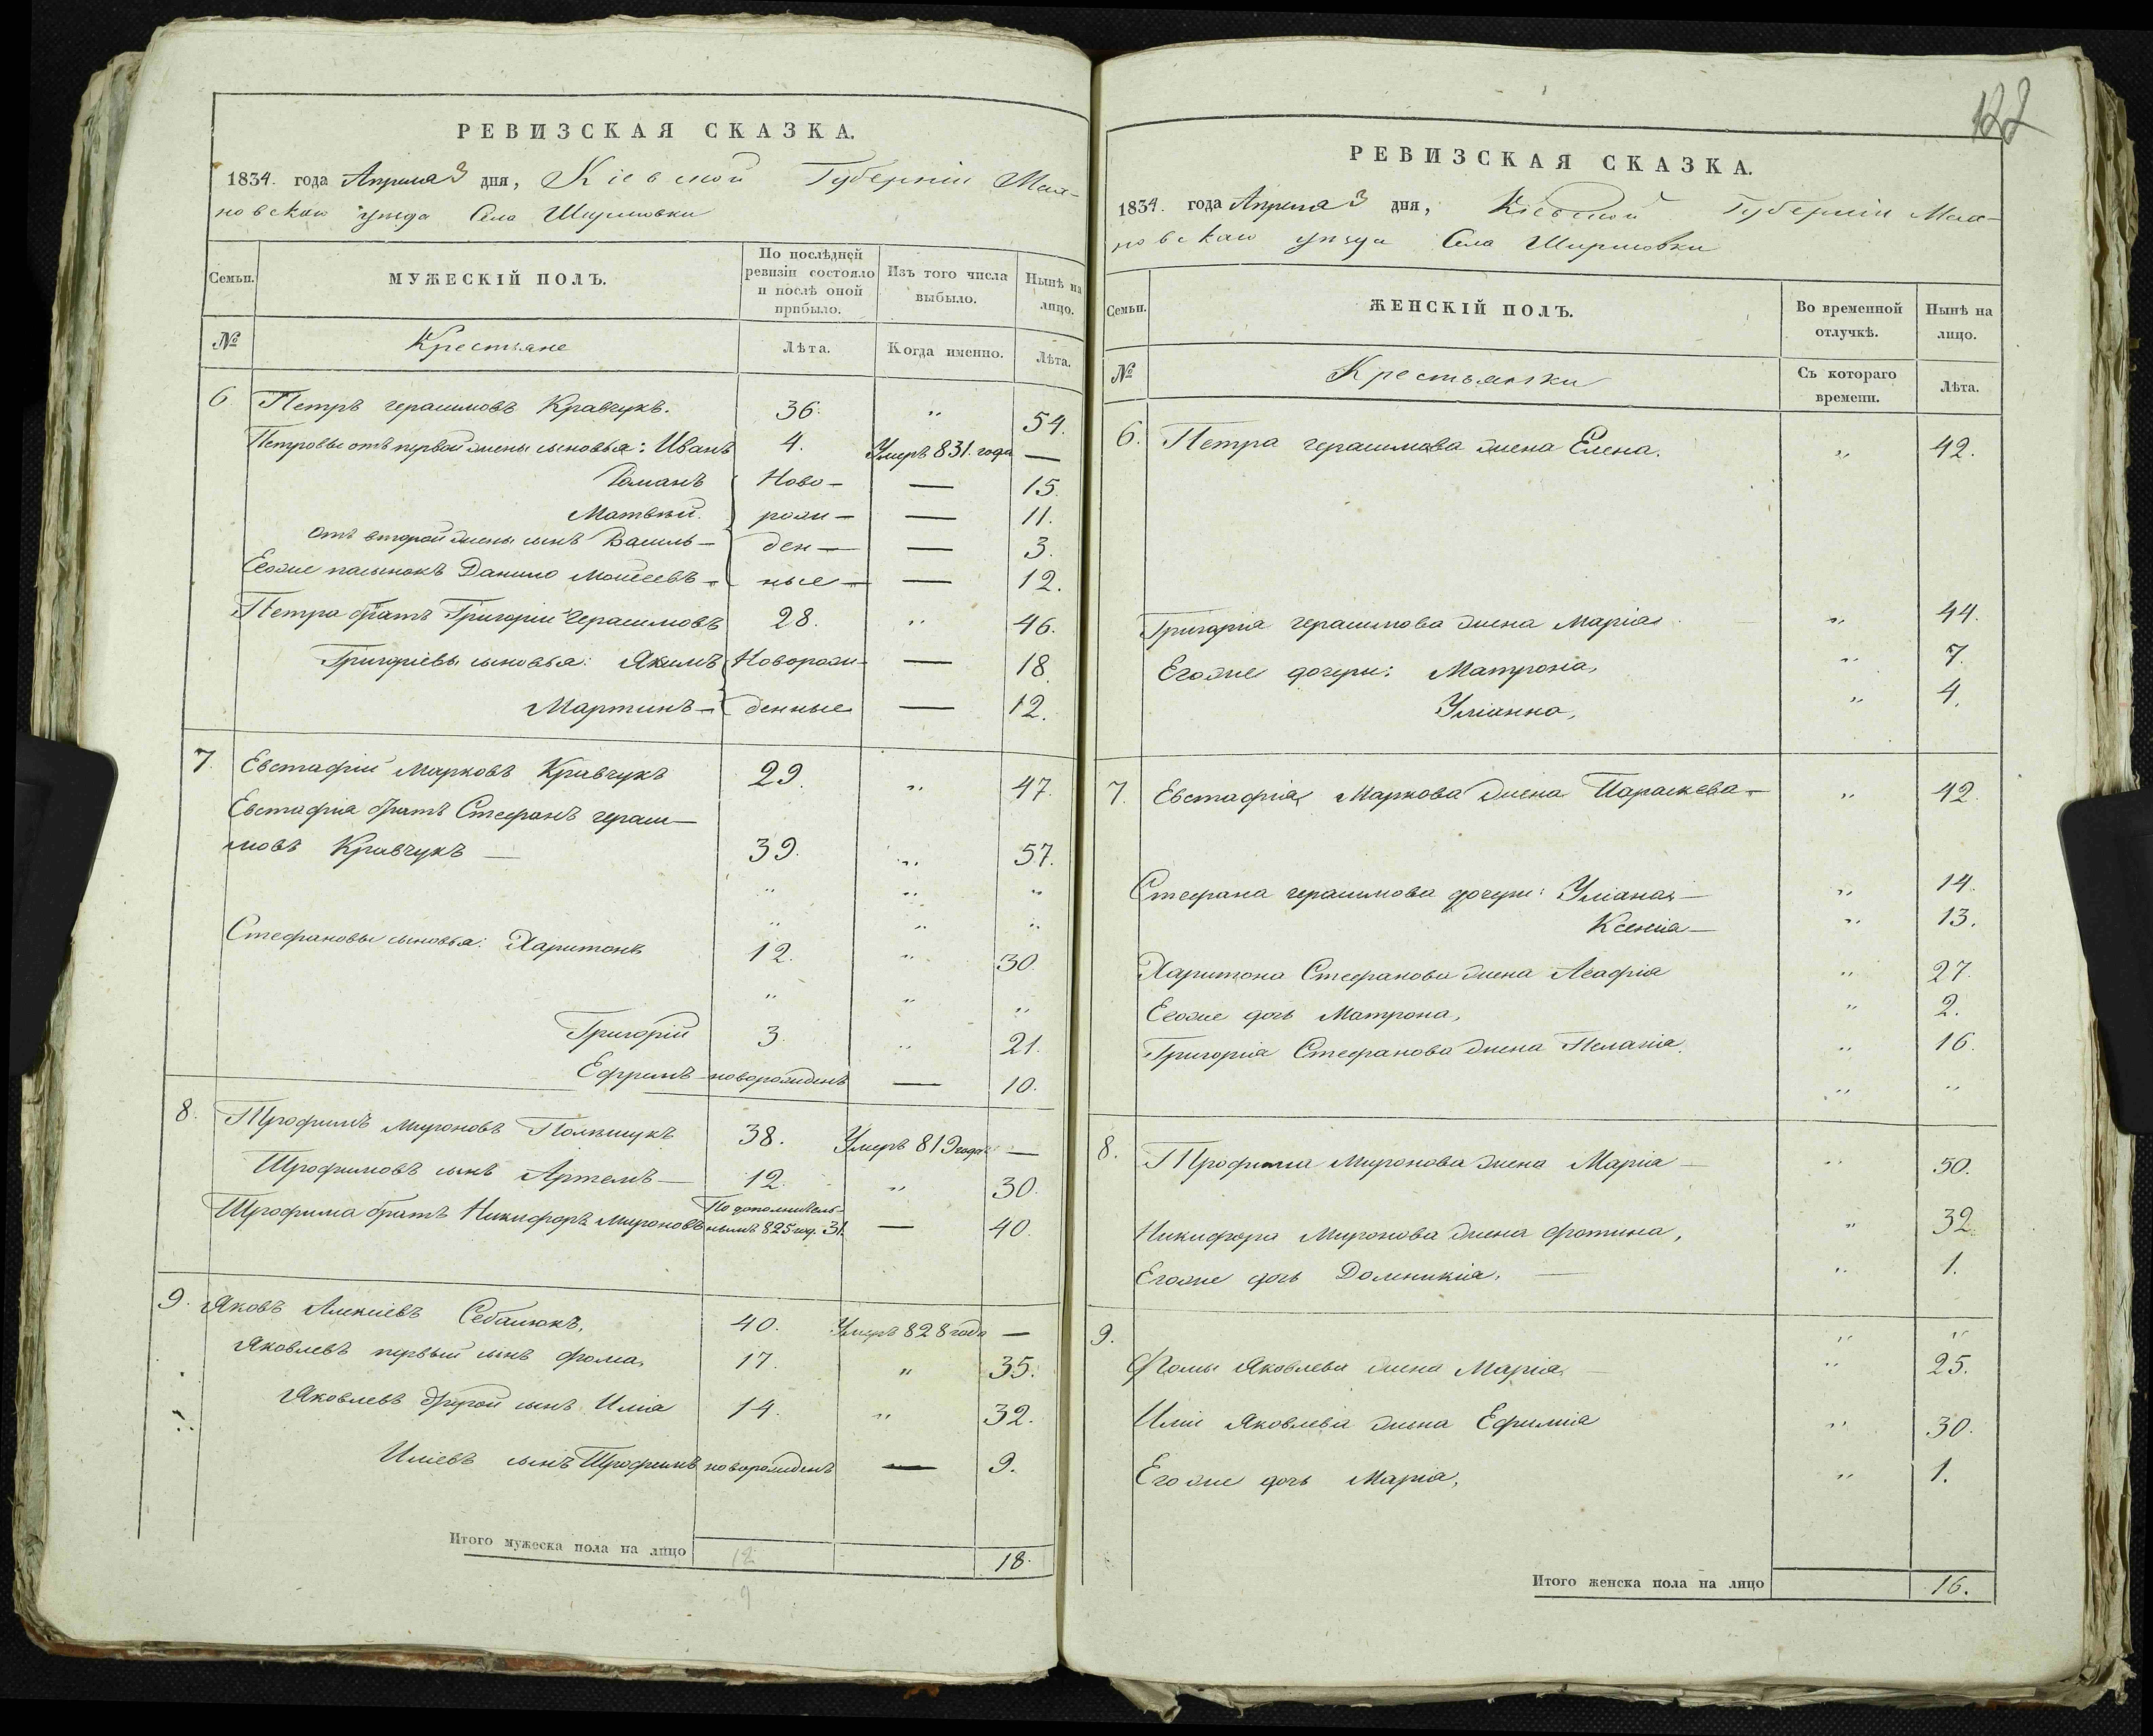 РЕВИЗСКАЯ СКАЗКА.
1834. года Апреля 3 дня, Кіевской Губерніи Мах-
новскаго уезда Села Ширмовки
Семьи.
МУЖЕСКІЙ ПОЛЪ.
По послѣдней ревизіи состояло и послѣ оной прибыло.
Изъ того числа выбыло.
Нынѣ на лицо.
№ Крестьяне Лѣта. Когда именно. Лѣта.
6 Петръ Герасимовъ Кравчукъ. 36. „ 54.
Петровы отъ первой жены сыновья: Иванъ 4. Умеръ 831. года —
Романъ Ново- — 15.
Матвѣй. рож- — 11.
отъ второй жены сынъ Василь — ден — — 3.
Егоже пасынокъ Данило Моисеевъ — ные — — 12.
Петра братъ Григорій Герасимовъ 28. „ 46.
Григоріевы сыновья: Якимъ Новорож- — 18.
Мартинъ — денные — 12.
7. Евстафій Марковъ Кравчукъ 29. „ 47.
Евстафія братъ Стефанъ Гераси-
мовъ Кравчукъ — 39. „ 57.
„ „ „
„ „ „
Стефановы сыновья: Харитонъ 12. „ 30.
„ „ „
Григорій 3. „ 21.
Ефремъ — новорожденъ — 10.
8. Трофимъ Мироновъ Полѣщукъ 38. Умеръ 819 года —
Трофимовъ сынъ Артемъ — 12. „ 30.
Трофима братъ Никифоръ Мироновъ По дополнитель-
нымъ 825 год. 31. — 40.
9. Яковъ Алексіевъ 40. Умеръ 828 года —
Яковлевъ первый сынъ Фома, 17. „ 35.
Яковлевъ другой сынъ Илія 14. „ 32.
Иліевъ сынъ Трофимъ новорожденъ — 9.
Итого мужеска пола на лицо 12 18.
9
122
РЕВИЗСКАЯ СКАЗКА.
1834. года Апреля 3 дня, Кіевской Губерніи Мах-
новскаго уезда Села Ширмовки
Семьи.
ЖЕНСКІЙ ПОЛЪ.
Во временной отлучкѣ.
Нынѣ на лицо.
№ Крестьянки Съ котораго времени. Лѣта.
6. Петра Герасимова жена Елена. „ 42.
Григорія Герасимова жена Марія. „ 44.
Егоже дочери: Матрона, „ 7.
Уліанна, „ 4.
7. Евстафія Маркова жена Параскева — „ 42.
Стефана Герасимова дочери: Уліана — „ 14.
Ксенія — „ 13.
Харитона Стефанова жена Агафія „ 27.
Егоже дочь Матрона, „ 2.
Григорія Стефанова жена Пелагія. „ 16.
„ „
8. Трофима Миронова жена Марія — „ 50.
Никифора Миронова жена Фотина, „ 32.
Егоже дочь Домникія, — „ 1.
9. „ „
Фомы Яковлева жена Марія — „ 25.
Иліи Яковлева жена Ефимія „ 30.
Егоже дочь Марія, „ 1.
Итого женска пола на лицо 16.